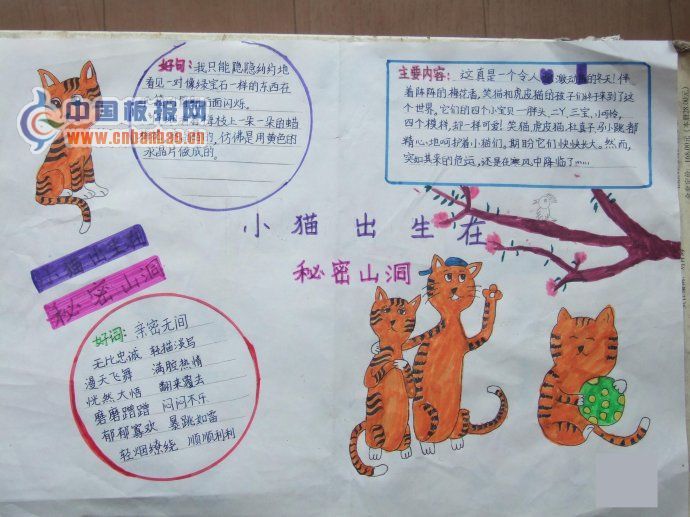 好句：我只能隐隐约约地
看见一对像绿宝石一样的东西在
面闪烁。
枝上一朵一朵的蜡
的，仿佛是用黄色的
水晶片做成的。
中国板报网
www.cnbanbao.cn
主要内容：这真是一个令人激动的冬天！伴
着阵阵的梅花香，笑猫和虎皮猫的孩子们终于来到了这
个世界，它们的四个小宝贝—胖头、二丫、三宝、小可怜，
四个模样，却一样可爱！笑猫、虎皮猫、杜真子、马小跳，都
精心地呵护着小猫们，期盼它们快快长大。然而，
突如其来的危运，还是在寒风中降临了……
小猫出生在
秘密山洞
小猫出生在
秘密山洞
好词：亲密无间
无比忠诚 轻描淡写
漫天飞舞 满腔热情
恍然大悟 翻来覆去
磨磨蹭蹭 闷闷不乐
郁郁寡欢 暴跳如雷
轻烟缭绕 顺顺利利